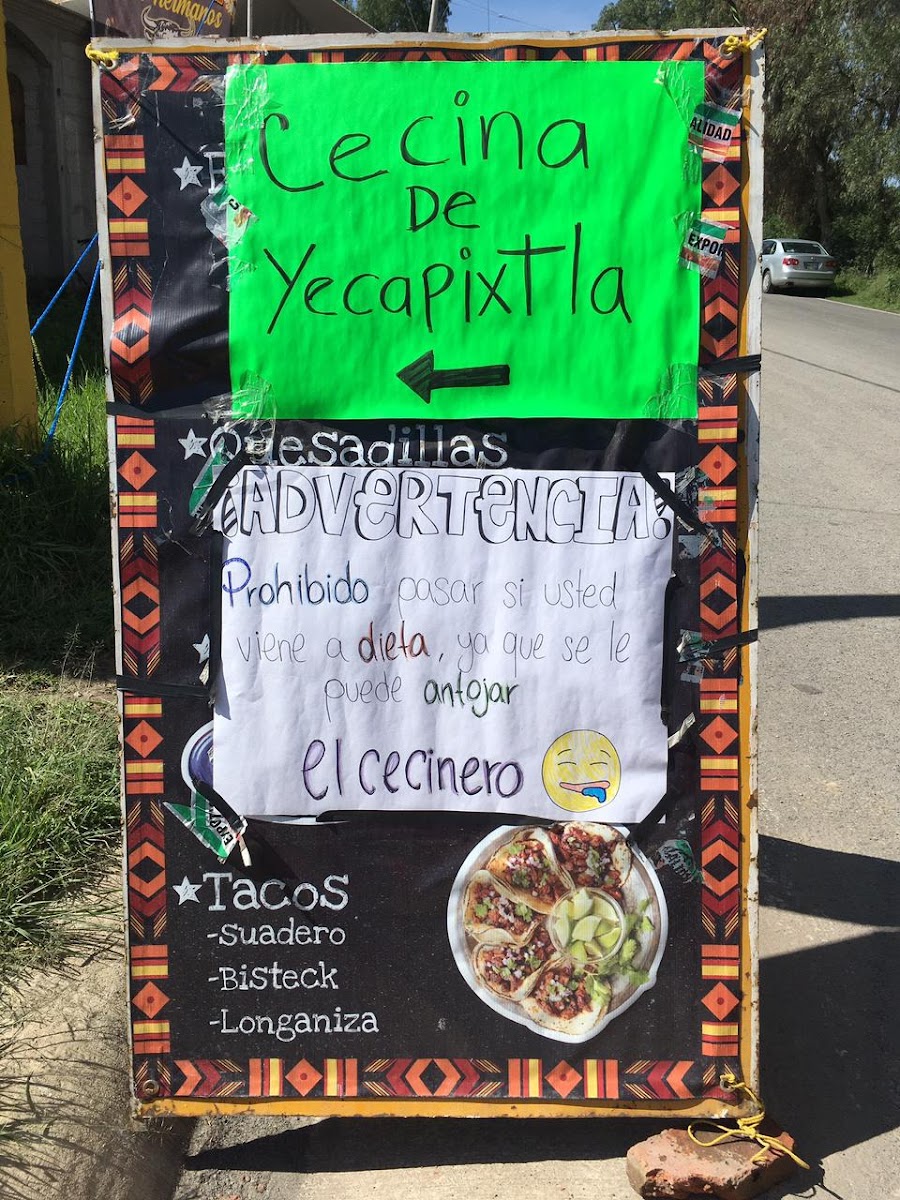 hermanos
Cecina
De
Yecapixtla
ALIDAD
EXPOR
Quesadillas
¡ADVERTENCIA!
Prohibido pasar si usted
viene a dieta, ya que se le
puede antojar
el cecinero
Tacos
-Suadero
-Bisteck
-Longaniza